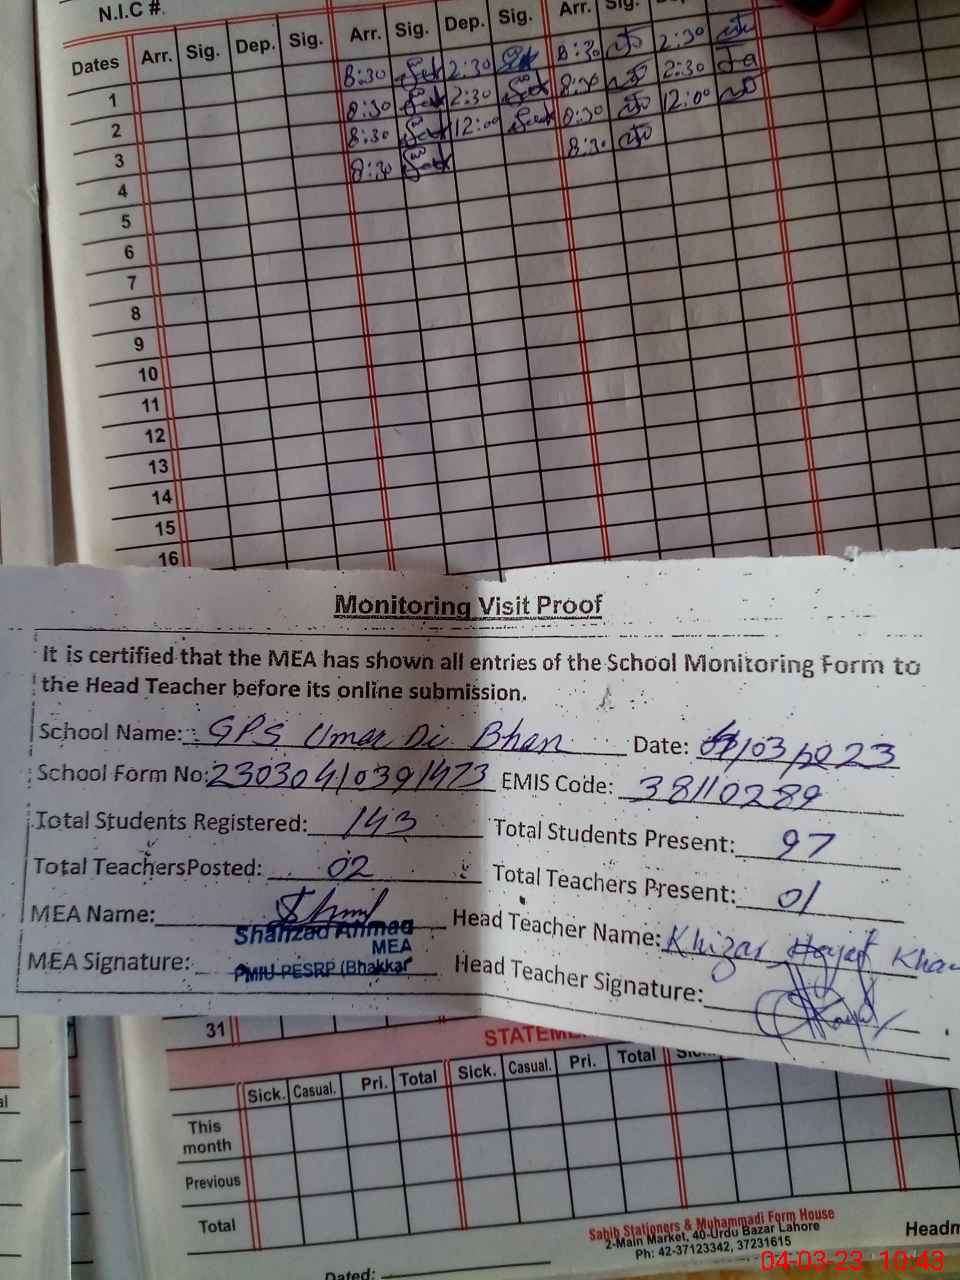 N.I.C #.
Dates Arr. Sig. Dep. Sig. Arr. Sig. Dep. Sig. Arr. Sig.
8:30 2:30 8:30 2:30
1 8:30 2:30 8:30 2:30
2 8:30 12:00 8:30 12:00
3 8:30 8:30
4
5
6
7
8
9
10
11
12
13
14
15
16
Monitoring Visit Proof
It is certified that the MEA has shown all entries of the School Monitoring Form to
the Head Teacher before its online submission.
School Name: GPS Umar Di Bhan Date: 04/03/2023
School Form No: 23030410391473 EMIS Code: 38110289
Total Students Registered: 143 Total Students Present: 97
Total Teachers Posted: 02 Total Teachers Present: 01
MEA Name: Head Teacher Name: Khizar Hayat Khan
Shahzad Ahmad
MEA
MEA Signature: PMIU-PESRP (Bhakkar Head Teacher Signature:
31
STATEME
Sick. Casual. Pri. Total Sick. Casual. Pri. Total Sick.
This
month
Previous
Total
Sahib Stationers & Muhammadi Form House
2-Main Market, 40-Urdu Bazar Lahore
Ph: 42-37123342, 37231615
Headm
Dated:
04-03-23 10:43